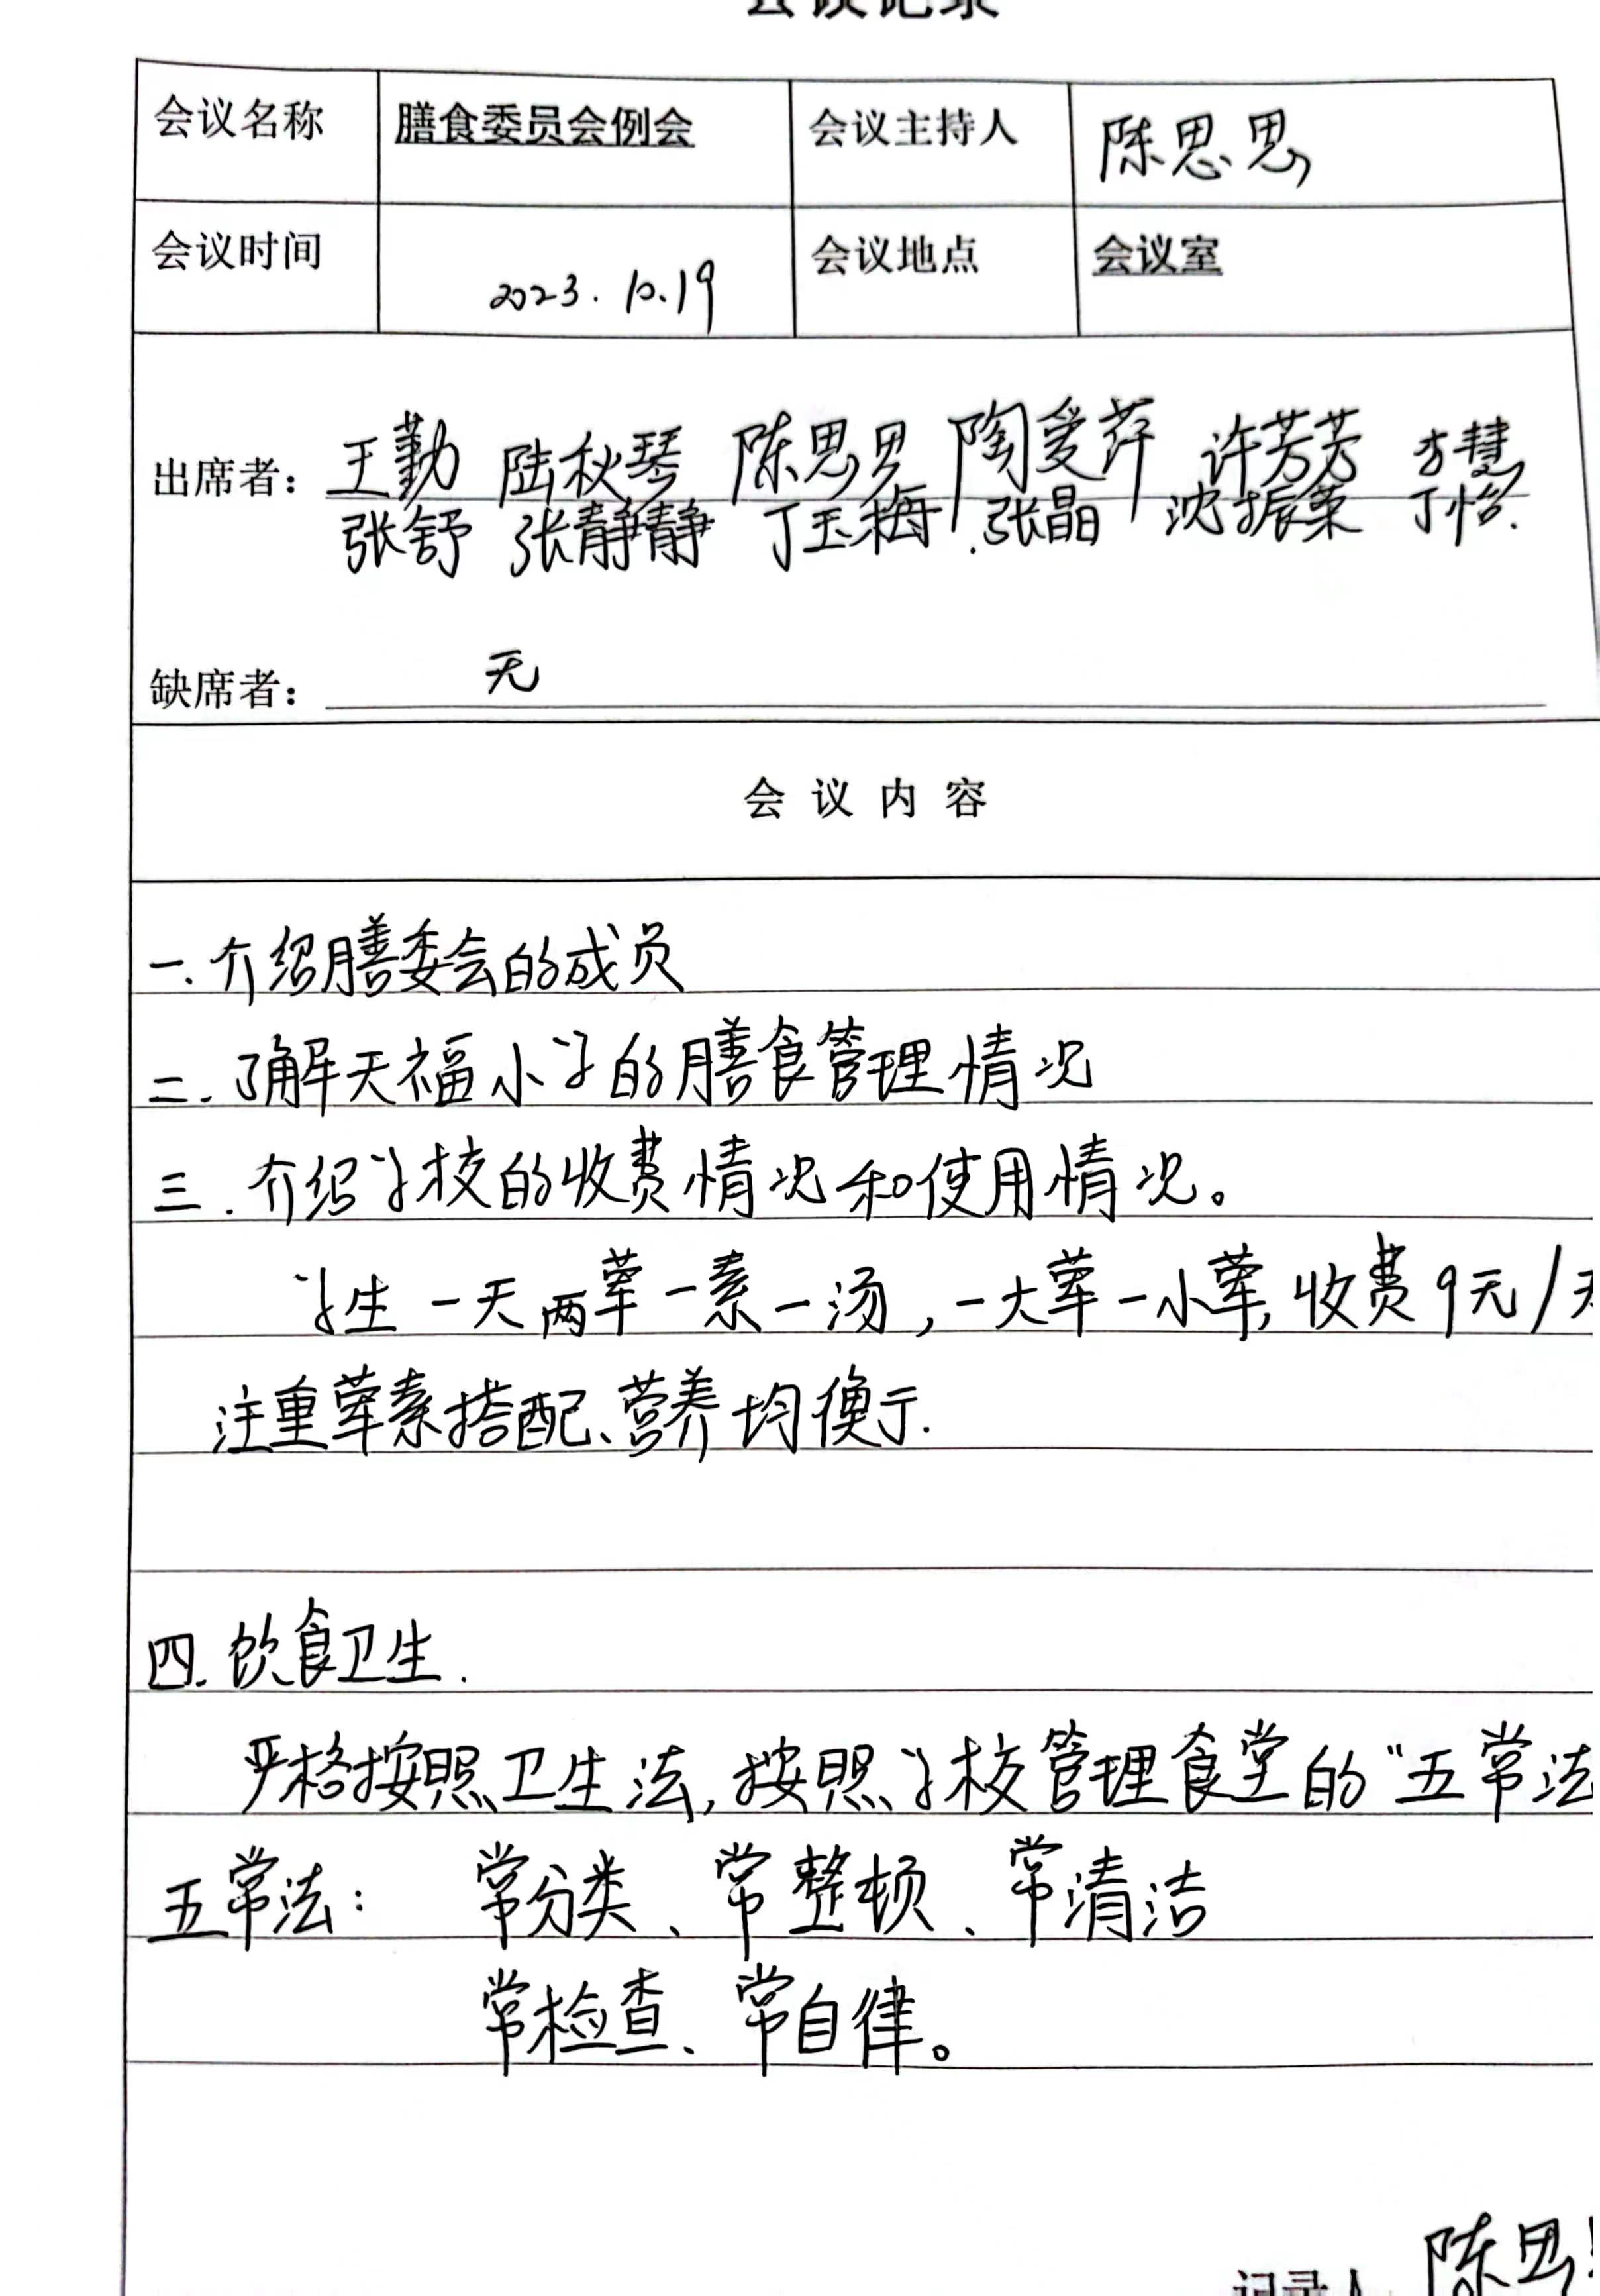 会议记录
会议名称 膳食委员会例会 会议主持人 陈思思
会议时间 2023.10.19 会议地点 会议室
出席者：王勤 陆秋琴 陈思思 陶爱萍 许芳芳 方慧
张舒 张静静 丁玉梅 张晶 沈振荣 丁怡.
缺席者：无
会议内容
一.介绍膳委会的成员
二.了解天福小学的膳食管理情况
三.介绍学校的收费情况和使用情况。
学生一天两荤一素一汤,一大荤一小荤,收费9元/天
注重荤素搭配、营养均衡.
四.饮食卫生.
严格按照卫生法,按照学校管理食堂的"五常法
五常法: 常分类、常整顿、常清洁
常检查、常自律。
记录人 陈思